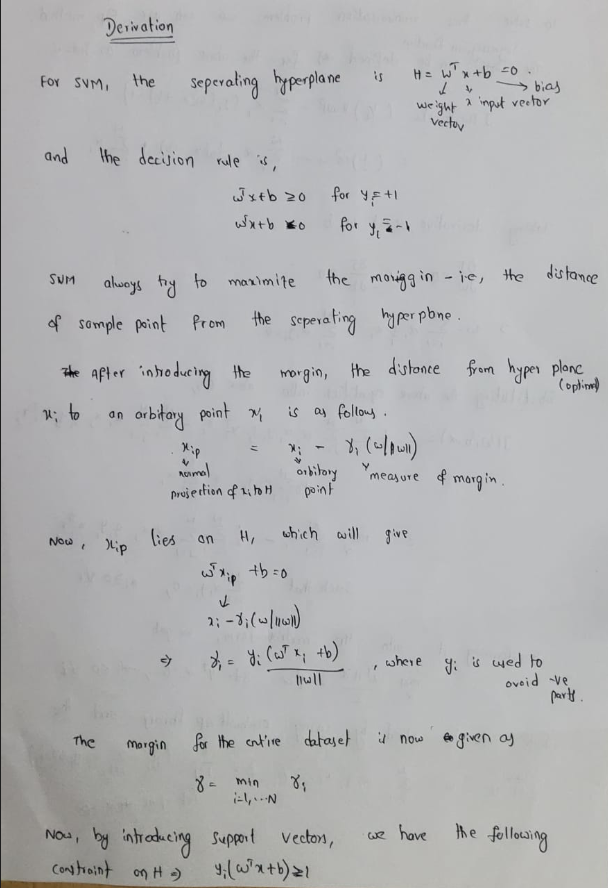 Derivation
For SVM, the seperating hyperplane is H = wᵀx + b = 0.
weight vector
input vector
bias
and the decision rule is,
wᵀx+b ≥0 for yᵢ = +1
wᵀx+b <0 for yᵢ = -1
SVM always try to maximize the margin - i.e, the distance
of sample point from the seperating hyperplane.
After introducing the margin, the distance from hyper plane
(optimal)
xᵢ to an arbitary point xᵢ is as follows.
xᵢₚ = xᵢ - γᵢ (w/||w||)
normal projection of xᵢ to H
arbitory point
measure of margin.
Now, xᵢₚ lies on H, which will give
wᵀxᵢₚ + b = 0
xᵢ - γᵢ(w/||w||)
⇒ γᵢ = yᵢ (wᵀxᵢ + b) / ||w|| , where yᵢ is used to
avoid -ve
parts.
The margin for the entire dataset is now given as
γ = min γᵢ
i=1,...N
Now, by introducing support vectors, we have the following
constraint on H ⇒ yᵢ(wᵀx+b) ≥1